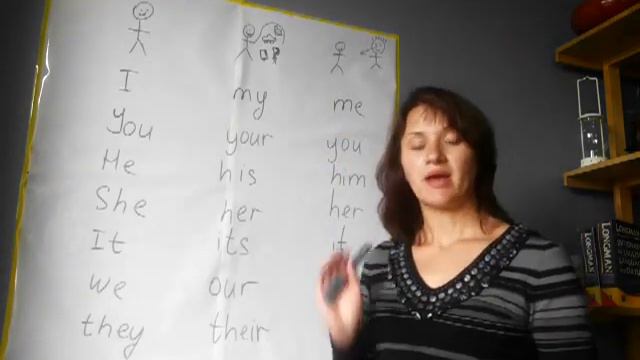 I my me
You your you
He his him
She her her
It its it
we our
they their
LONGMAN
LONGMAN